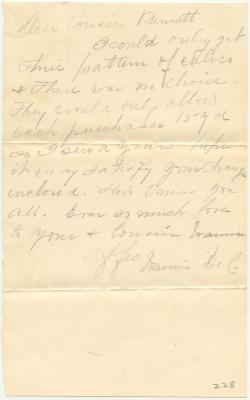 Dear Cousin Bennett
I could only get
this pattern of calico
& There was no choice.
They would only allow
each purchaser 13 yd
so I send yours hope
it may satisfy your change
enclosed. God bless you
all. Ever so much love
to you & Cousin
Affec
De C.
228